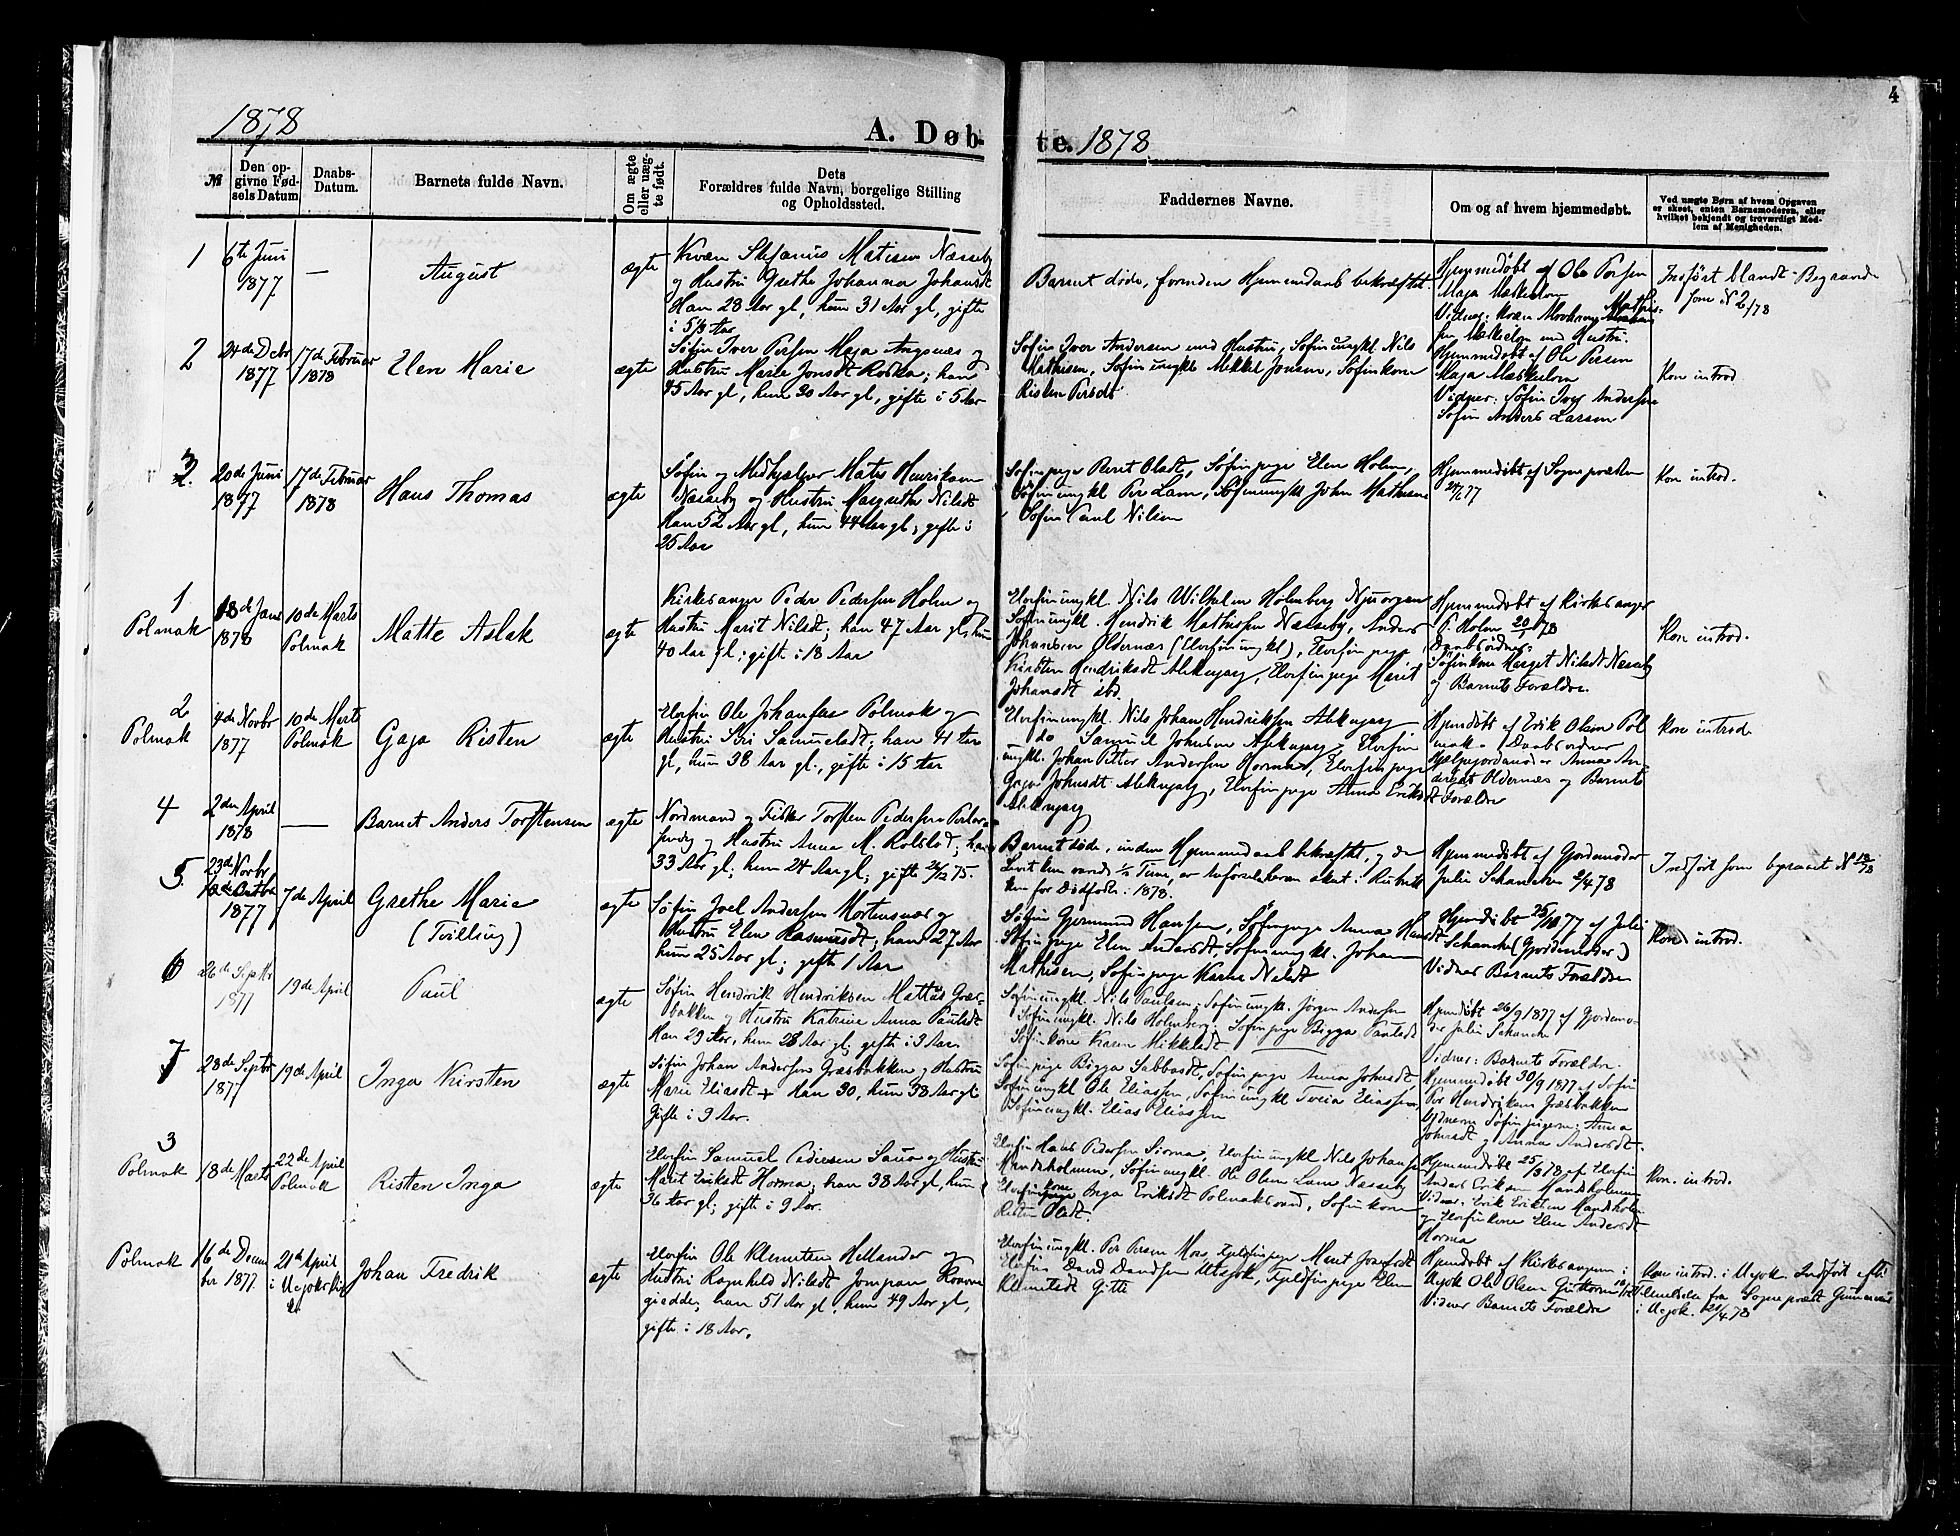 4
1878
A. Døbte. 1878
№
Den opgivne Fødsels Datum
Daabs-Datum.
Barnets fulde Navn.
Om ægte eller uægte født.
Dets Forældres fulde Navn, borgelige Stilling og Opholdssted.
Faddernes Navne.
Om og af hvem hjemmedøbt.
Ved uægte Børn af hvem Opgaven er skeet, enten Barnemoderen, eller hvilket bekjendt og troværdigt Medlem af Menigheden.
1
6te Juni
1877
—
August
ægte
Kvæn Stefanus Matisen Næsseby
og Hustru Grethe Johanna Johansdt
Han 28 Aar gl, hun 31 Aar gl, gifte
i 5½ Aar
Barnet døde, forinden Hjemmedaab bekræftet.
Hjemmedøbt af Ole Persen
Maja Mæskelven
Indført blandt Begravede
som N 2/78
2
24de Decbr
1877
17de Februar
1878
Elen Marie
ægte
Søfin Iver Persen Maja Angsnæs og
Hustru Marie Jonsdt Roska; han
45 Aar gl, hun 30 Aar gl, gifte i 5 Aar
Søfin Iver Andersen med Hustru, Søfinungkl Nils
Mathisen, Søfinungkl Mikkel Jonsen, Søfinkone
Risten Persdt
Hjemmedøbt af Ole Persen
Maja Mæskelven
Vidner: Søfin Iver Andersen
Søfin Anders Larsen
Kon introd
3
20de Juni
1877
17de Februar
1878
Hans Thomas
ægte
Søfin og Medhjælper Mats Henriksen
Næsseby og Hustru Margrethe Nilsdt
han 52 Aar gl, hun 44 Aar gl, gifte i
25 Aar
Søfinpige Berit Olsdt, Søfinpige Elen Holm,
Søfinungkl Per Lam, Søfinungkl John Mathisen
Søfin Paul Nilsen
Hjemmedøbt af Sognepræsten
Kon introd.
1
Polmak
18de Janr
1878
10de Marts
Polmak
Matte Aslak
ægte
Kirkesanger Peder Pedersen Holm og
Hustru Marit Nilsdt; han 47 Aar gl, hun
40 Aar gl; gifte i 18 Aar
Elvefinungkl. Nils Wilhelm Holmberg Njuorgam
Søfinungkl. Hendrik Mathisen Næsseby, Anders
Johansen Oldernæs (Elvefinungkl), Elvefinpige
Kirsten Hendriksdt Alleknjarg, Elvefinpige Marit
Johansdt ibd.
Hjemmedøbt af Kirkesanger
P. Holm 20/1 78
Daabsvidner:
Søfinkone Marget Nilsdt Næsseby
og Barnets Forældre.
Kon introd.
2
Polmak
4de Novbr
1877
10de Marts
Polmak
Gaja Risten
ægte
Elvefin Ole Johansen Polmak og
Hustru Siri Samuelsdt; han 41 Aar
gl, hun 38 Aar gl., gifte i 15 Aar
Elvefinungkl. Nils Johan Hendriksen Alleknjarg
do Samuel Johnsen Alleknjarg, Elvefin
ungkl. Johan Petter Andersen Horma, Elvefinpige
Gaja Johnsdt Alleknjarg, Elvefinpige Anna Eriksdt
Alleknjarg
Hjemdøbt af Erik Olsen Pol
mak. Daabsvidner
Hjelpejordmoder Anna An-
dersdt Oldernæs og Barnets
Forældre
Kon introd.
4
2den April
1878
—
Barnet Anders Torstensen
ægte
Nordmand og Fisker Torsten Pedersen
og Hustru Anna M. Rolsdt; han
33 Aar gl; hun 24 Aar gl; gifte 26/12 75.
Barnet døde, inden Hjemmedaab bekræftet, og da
Levetiden varede ½ Time, er Anførelsen skeet i Rubrik
ken for Dødfødte i 1878.
Hjemmedøbt af Gjordemoder
Julie Schancke 2/4 78
Indført som begravet N 12/78
5.
23de Novbr
1877
7de April
Grethe Marie
(Tvilling)
ægte
Søfin Joel Andersen Mortensnæs og
Hustru Elen Rasmusdt; han 27 Aar
hun 25 Aar gl; gifte 1 Aar
Søfin Gjermund Hansen, Søfinpige Anna Hansdt
Søfinpige Elen Andersdt, Søfinungkl. Johan
Mathisen, Søfinpige Karen Nilsdt
Hjemdøbt 25/10 77 af Julie
Schancke (Gjordemoder)
Vidner Barnets Forældre
Kon introd.
6
26de Septbr
1877
19de April
Paul
ægte
Søfin Hendrik Hendriksen Mattus Græs-
bakken og Hustru Katrine Anna Paulsdt
Han 29 Aar, hun 28 Aar gl; gifte i 3 Aar.
Søfinungkl. Nils Paulsen, Søfinungkl. Jörgen Andersen
Søfinungkl. Nils Holmberg, Søfinpige Bigga Paulsdt
Søfinkone Karen Mikkelsdt
Hjemdøbt 26/9 1877 af Gjordemo-
der Julie Schancke
Vidner: Barnets Forældre.
7
28de Septbr
1877
19de April
Inga Kirsten
ægte
Søfin Johan Andersen Græsbakken og Hustru
Marie Eliasdt + han 30, hun 38 Aar gl
Gifte i 9 Aar.
Søfinpige Bigga Sabbasdt, Søfinpige Anna Johnsdt,
Søfinungkl Ole Eliassen, Søfinungkl Eliassen,
Søfinungkl. Elias Eliassen
Hjemmedøbt 30/9 1877 af Søfin
Per Hendriksen Græsbakken
Vidnerne Søfinpigerne: Anna
Johnsdt og Anna Andersdt.
3
Polmak
18de Marts
22de April
Polmak
Risten Inga
ægte
Elvefin Samuel Pedersen Saua og Hustru
Marit Eriksdt Horma; han 38 Aar gl, hun
36 Aar gl; gifte i 9 Aar.
Elvefin Hans Pedersen Sioma, Elvefinungkl Nils Johansen
Mandsholmen, Søfinungkl. Ole Olsen Lam Næsseby
Elvefinkone Inga Eriksdt Polmaksvand, Søfinkone
Risten Olsdt.
Hjemmedøbt 25/3 1878 af Elvefin
Anders Eriksen Mandsholmen
Vidner: Erik Eriksen Mandsholm
og Elvefinkone Elen Andersdt
Horma
Kon. introd.
Polmak
16de Decem
ber 1877.
21de April
i Utsjok Kir
ke
Johan Fredrik
ægte
Elvefin Ole Klemetsen Hellander og
Hustru Ragnhild Nilsdt Jompan
han 51 Aar gl, hun 49 Aar gl,
gifte i 18 Aar.
Elvefinungkl. Per Persen Mos, Fjeldfinpige Marit Josefsdt
Elvefin David Davidsen Utsjok, Fjeldfinpige Elen
Klemetsdt Gitte
Hjemdøbt af Kirkesangeren i
Utsjok Ole Olsen Guttorm
Vidner Barnets Forældre
Kon introd. i Utsjok. Indført efter
Meddelelse fra Sognepræst
i Utsjok. 21/4 78